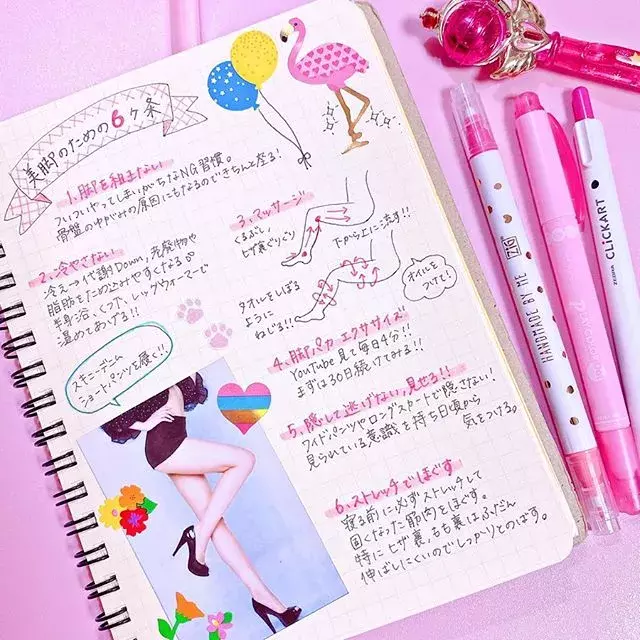 美脚のための6ヶ条
1.脚を組まない
ついついやってしまいがちなNG習慣。
骨盤のゆがみの原因にもなるのできちんと座る!
2.冷やさない
冷え→代謝Down,老廃物や
脂肪をためこみやすくなる。
半身浴、くつ下、レッグウォーマーで
温めてあげる!!
スキニーデニム
ショートパンツを履く!!
3.マッサージ
くるぶし
ヒザ裏ぐりぐり
下から上に流す!!
タオルをしぼる
ように
ねじる!!
オイルを
つけて!
4.脚パカエクササイズ
YouTube見て毎日4分!!
まずは30日続けてみる!!
5.隠して逃げない,見せる!!
ワイドパンツやロングスカートで隠さない!
見られている意識を持ち日頃から
気をつける。
6.ストレッチでほぐす
寝る前に必ずストレッチして
固くなった筋肉をほぐす。
特にヒザ裏、もも裏はふだん
伸ばしにくいのでしっかりとのばす。
HANDMADE BY ME ZIG
ZEBRA CLICKART